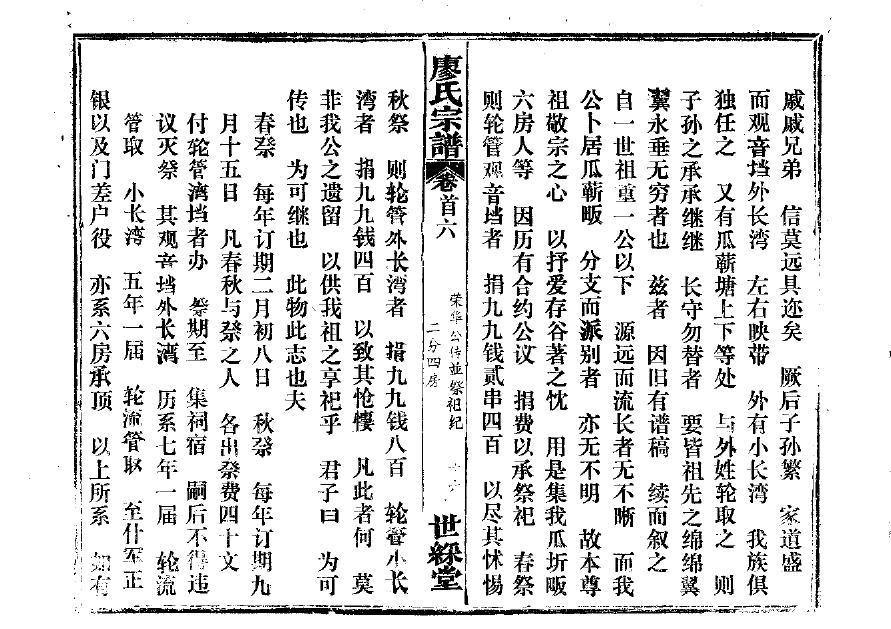 戚戚兄弟 信莫远具迩矣 厥后子孙繁 家道盛
而观音垱外长湾 左右映带 外有小长湾 我族俱
独任之 又有瓜蕲塘上下等处 与外姓轮取之 则
子孙之承承继继 长守勿替者 要皆祖先之绵绵翼
翼永垂无穷者也 兹者 因旧有谱稿 续而叙之
自一世祖重一公以下 源远而流长者无不晰 而我
公卜居瓜蕲畈 分支而派别者 亦无不明 故本尊
祖敬宗之心 以抒爱存谷著之忱 用是集我瓜圻畈
六房人等 因历有合约公议 捐费以承祭祀 春祭
则轮管观音垱者 捐九九钱贰串四百 以尽其怵惕
廖氏宗譜 卷首六
荣华公传並祭祖纪
二分四房
十六
世綵堂
秋祭 则轮管外长湾者 捐九九钱八百 轮管小长
湾者 捐九九钱四百 以致其怆悽 凡此者何 莫
非我公之遗留 以供我祖之享祀乎 君子曰 为可
传也 为可继也 此物此志也夫
春祭 每年订期二月初八日 秋祭 每年订期九
月十五日 凡春秋与祭之人 各出祭费四十文
付轮管湾垱者办 祭期至 集祠宿 嗣后不得违
议灭祭 其观音垱外长湾 历系七年一届 轮流
管取 小长湾 五年一届 轮流管取 至什军正
银以及门差户役 亦系六房承顶 以上所系 如有